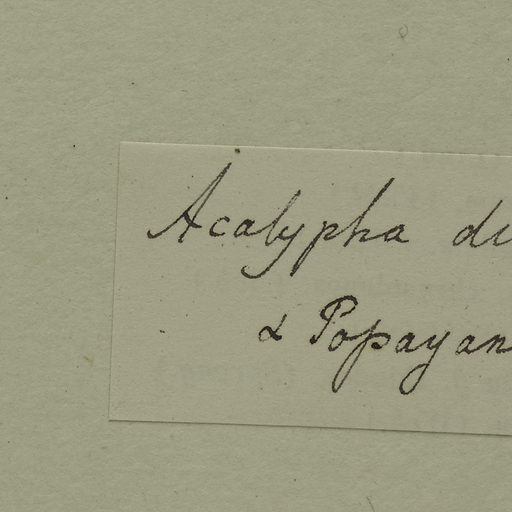 Acalypha di
& Popayan